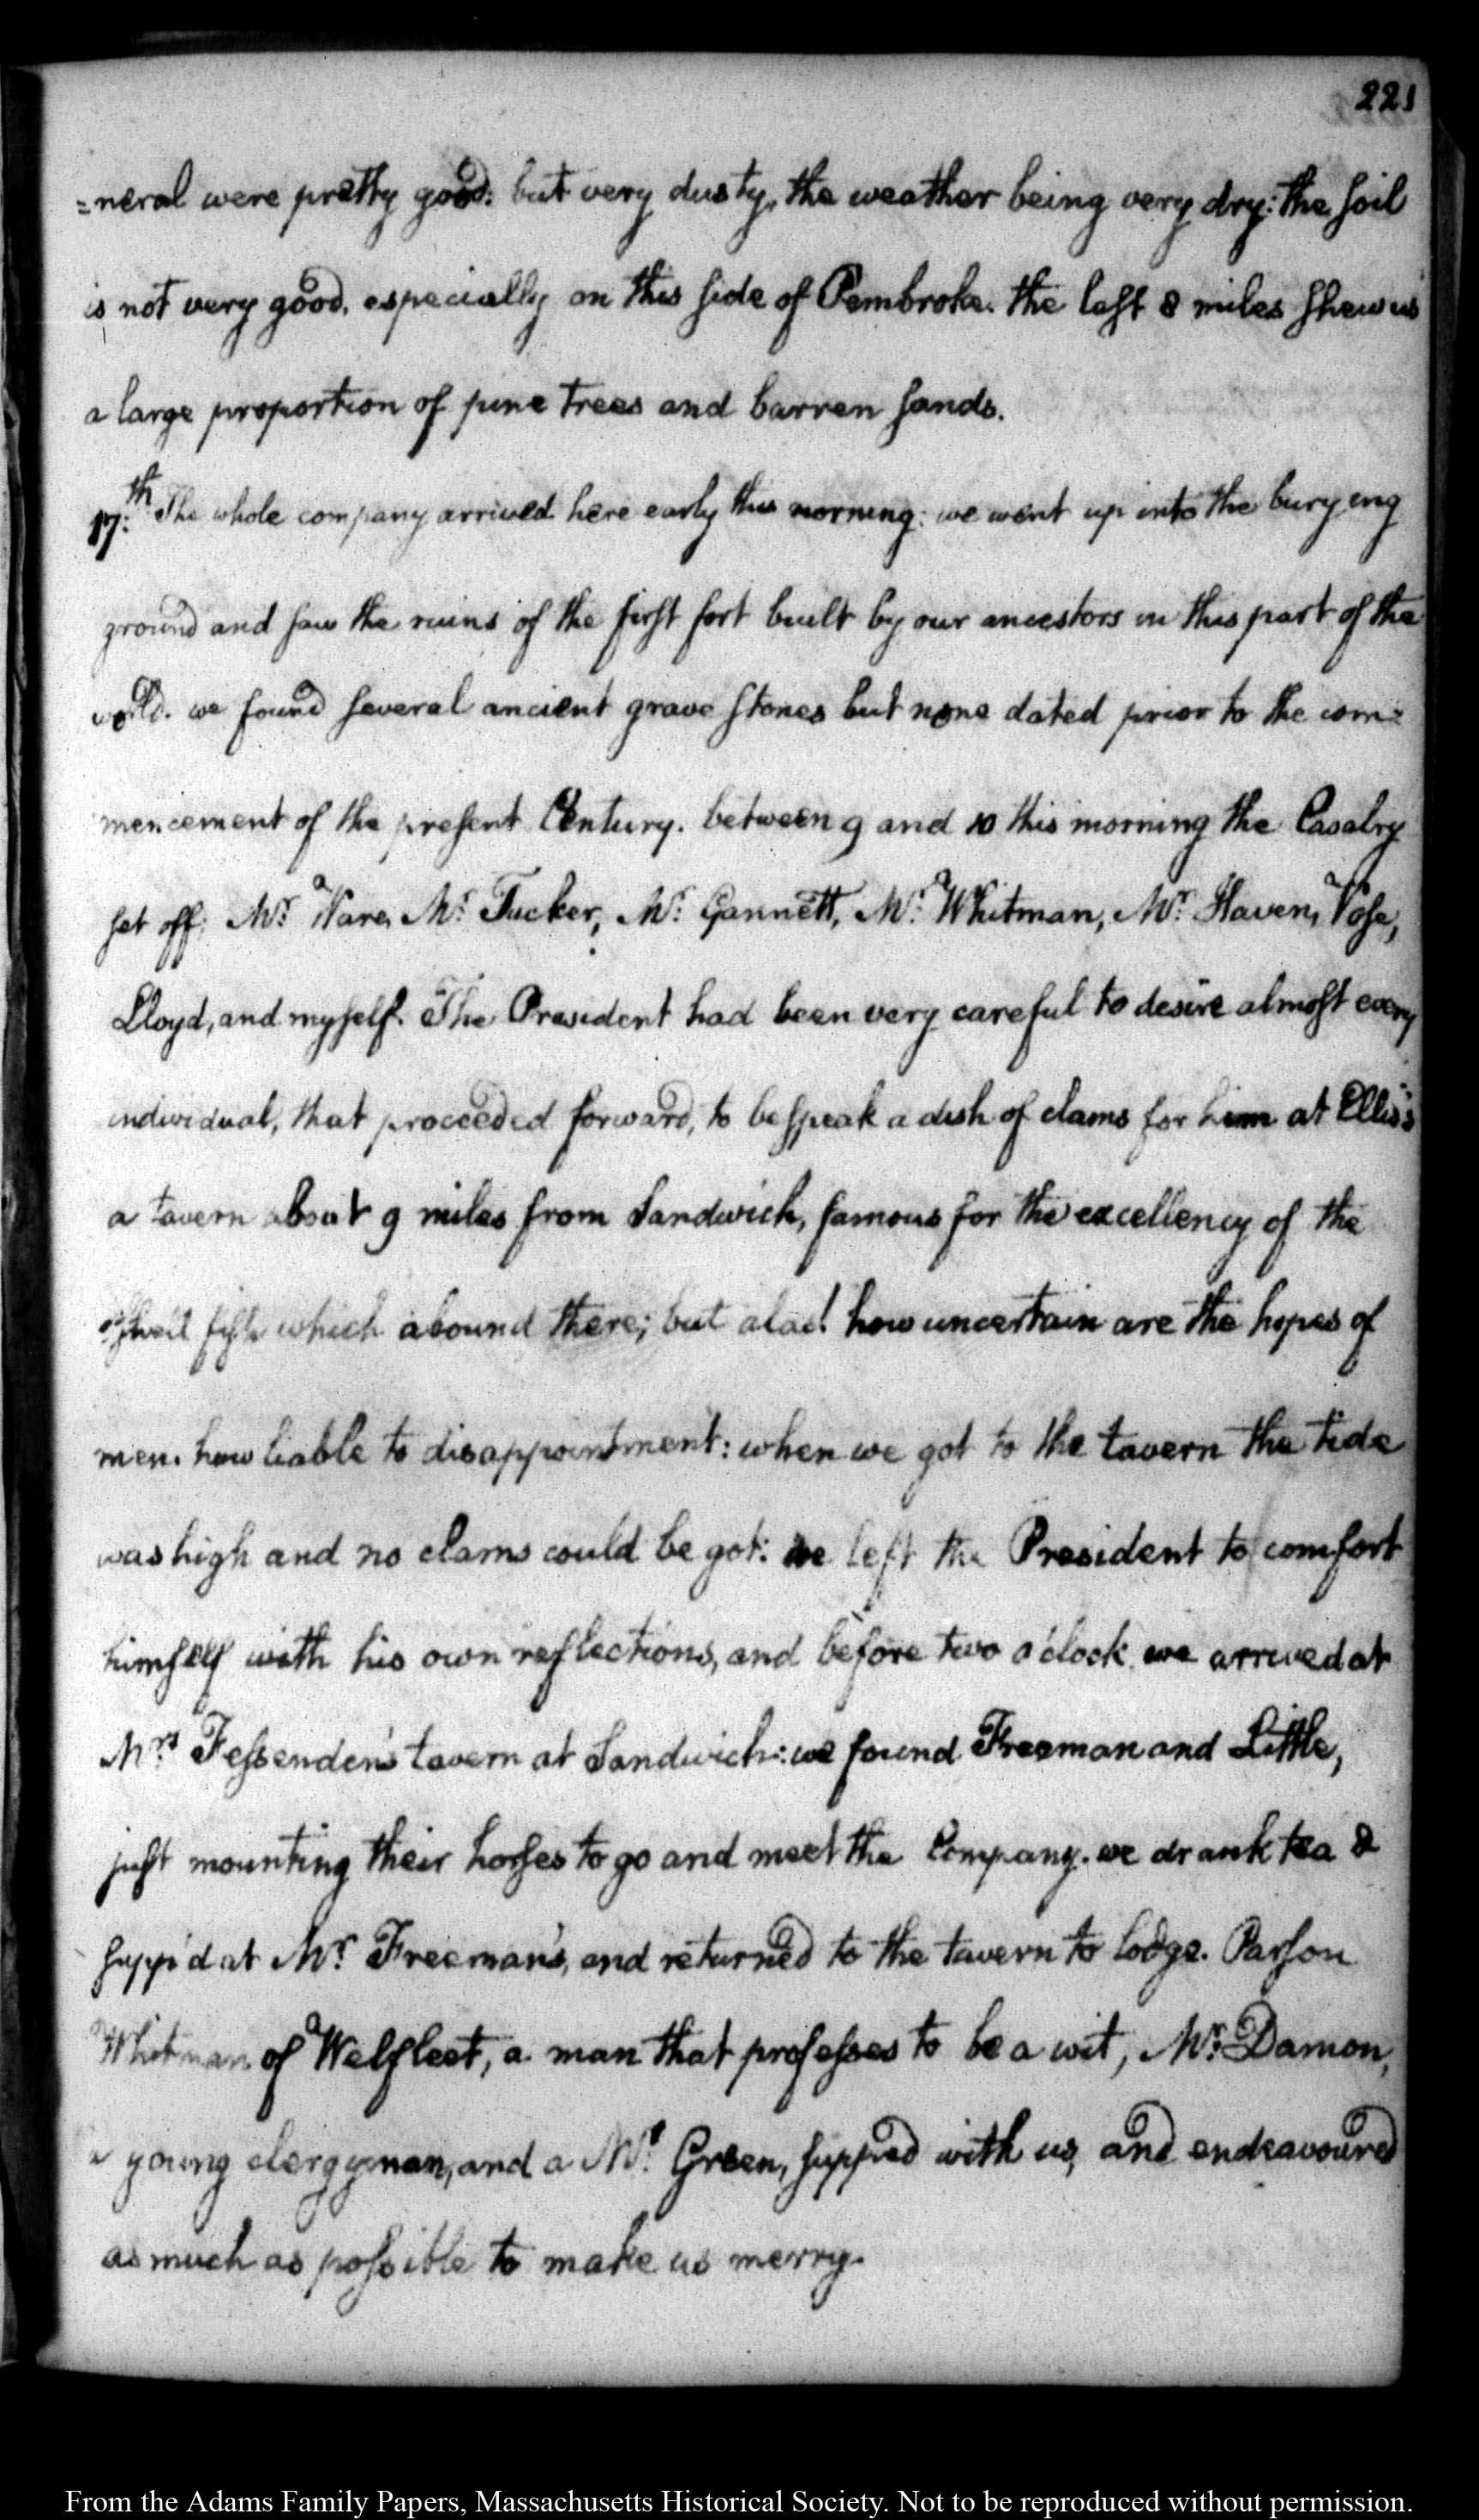 221
=neral were pretty good: but very dusty, the weather being very dry: the soil
is not very good, especially on this side of Pembroke. the last 8 miles shew us
a large proportion of pine trees and barren sands.
17:th The whole company arrived here early this morning: we went up into the burying
ground and saw the ruins of the first fort built by our ancestors in this part of the
world. we found several ancient grave stones but none dated prior to the com=
mencement of the present Century. between 9 and 10 this morning the Cavalry
set off: Mr. Ware, Mr. Tucker, Mr. Gannett, Mr. Whitman, Mr. Haven, Vose,
Lloyd, and myself. The President had been very careful to desire almost every
individual, that proceeded forward, to bespeak a dish of clams for him at Ellis's
a tavern about 9 miles from Sandwich, famous for the excellency of the
shell fish which abound there; but alas! how uncertain are the hopes of
men. how liable to disappointment: when we got to the tavern the tide
was high and no clams could be got: we left the President to comfort
himself with his own reflections, and before two o'clock we arrived at
Mrs Fessenden's tavern at Sandwich: we found Freeman and Little,
just mounting their horses to go and meet the Company. we drank tea &
supp'd at Mr. Freeman's, and returned to the tavern to lodge. Parson
Whitman of Welfleet, a man that professes to be a wit, Mr. Damon,
a young clergyman, and a Mr. Green, supped with us, and endeavoured
as much as possible to make us merry.
From the Adams Family Papers, Massachusetts Historical Society. Not to be reproduced without permission.